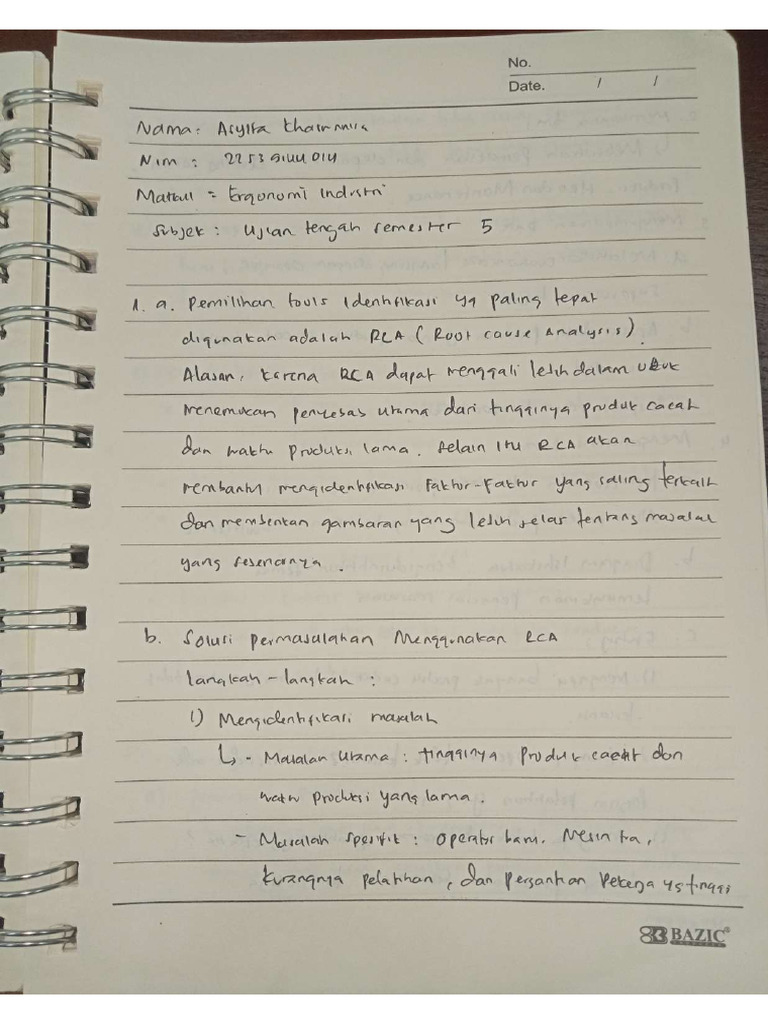 No.
Date. / /
Nama: Asyifa Khairunnisa
Nim : 2253 9144 014
Matkul = Ergonomi Industri
Subjek : Ujian tengah semester 5
1. a. Pemilihan tools Identifikasi yg paling tepat
digunakan adalah RCA ( Root cause Analysis).
Alasan, karena RCA dapat menggali lebih dalam untuk
menemukan penyebab utama dari tingginya produk cacat
dan waktu produksi lama. Selain itu RCA akan
membantu mengidentifikasi faktor-faktor yang saling terkait
dan memberikan gambaran yang lebih jelas tentang masalah
yang sebenarnya.
b. Solusi permasalahan Menggunakan RCA
Langkah-langkah :
1) Mengidentifikasi masalah
↳ - Masalah utama : tingginya produk cacat dan
waktu produksi yang lama.
- Masalah spesifik : operator baru. Mesin tua,
kurangnya pelatihan, dan pergantian pekerja yg tinggi
BAZIC